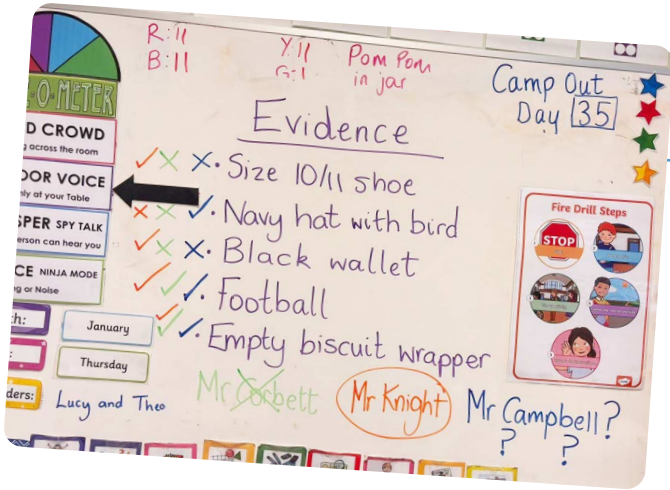 R:11
B:11
Y:11
G:1
Pom Pom
in jar
Camp Out
Day 35
-O-METER
D CROWD
g across the room
OOR VOICE
nly at your Table
SPER SPY TALK
erson can hear you
CE NINJA MODE
ng or Noise
Evidence
✓ x x • Size 10/11 shoe
x x ✓ • Navy hat with bird
✓ x x • Black wallet
✓ ✓ ✓ • Football
✓ ✓ ✓ • Empty biscuit wrapper
Fire Drill Steps
STOP
th:
January
Thursday
ders:
Lucy and Theo
Mr Corbett
Mr Knight
Mr Campbell?
? ?